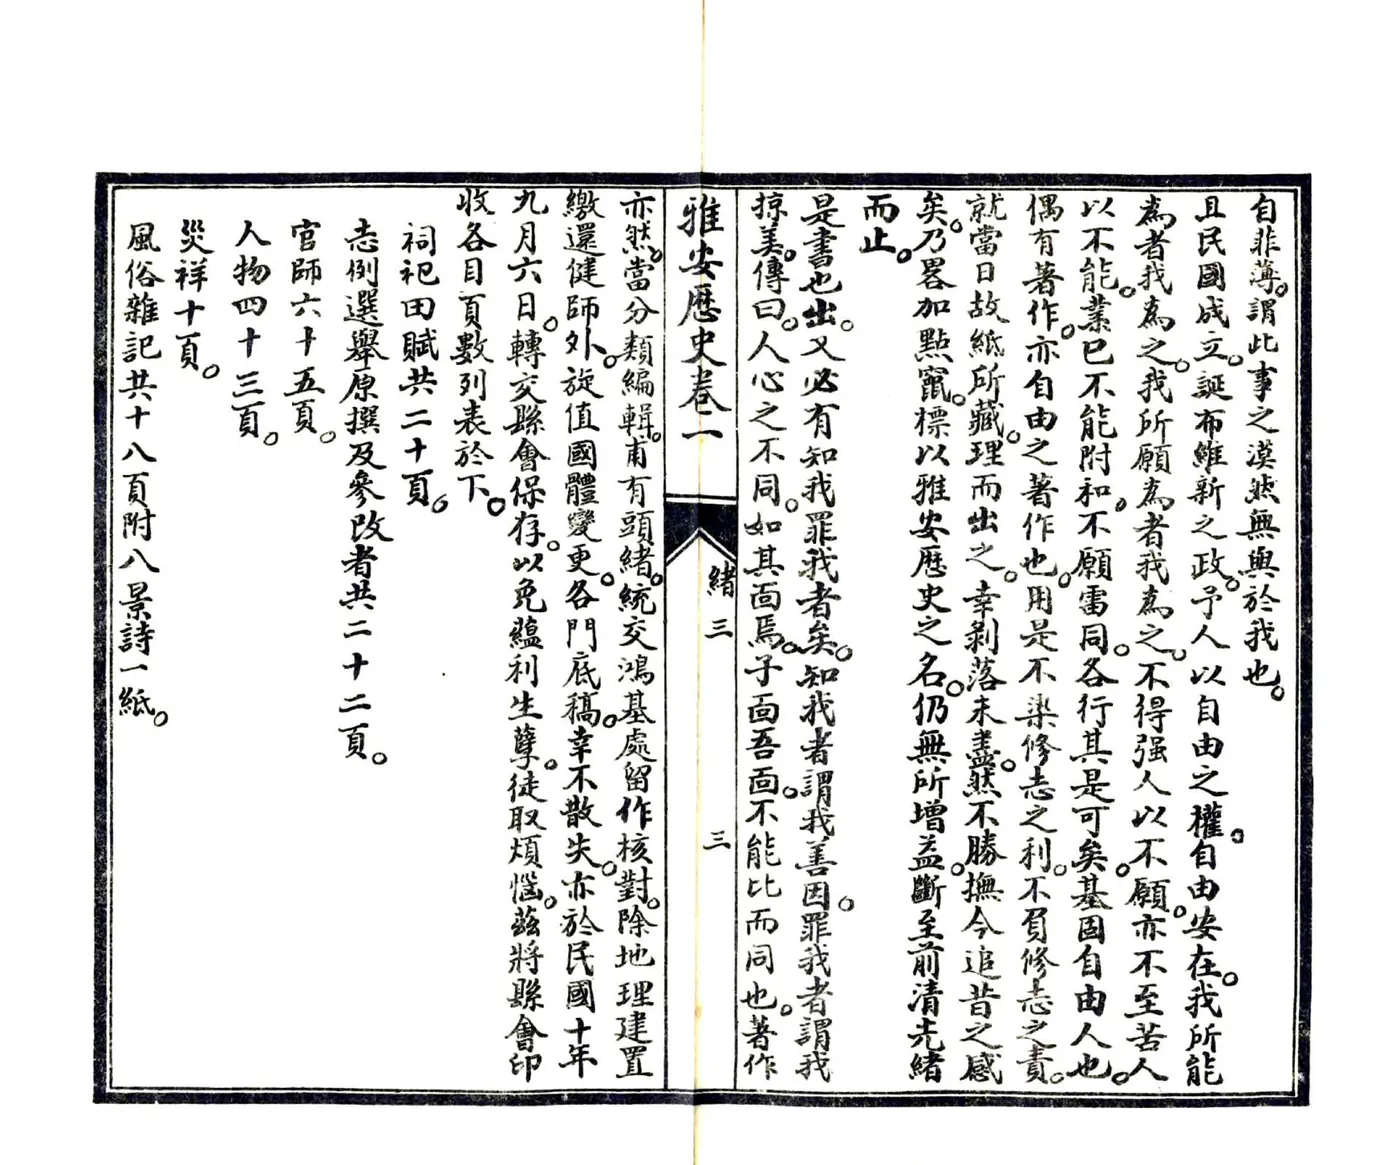 自非薄。謂此事之漠然無與於我也。
且民國成立。誕布維新之政。予人以自由之權。自由安在。我所能
為者我為之。我所願為者我為之。不得强人以不願。亦不至苦人
以不能。業已不能附和。不願雷同。各行其是可矣。基固自由人也。
偶有著作。亦自由之著作也。用是不染修志之利。不負修志之責。
就當日故紙所藏。理而出之。幸剝落未盡。然不勝撫今追昔之感
矣。乃畧加點竄。標以雅安歷史之名。仍無所增益。斷至前清光緒
而止。
是書也出。又必有知我罪我者矣。知我者謂我善因。罪我者謂我
掠美。傳曰。人心之不同。如其面焉。子面吾面。不能比而同也。著作
雅安歷史卷一
緒三
三
亦然。當分類編輯。甫有頭緒。統交鴻基處留作核對。除地理建置
繳還健師外。旋值國體變更。各門底稿。幸不散失。亦於民國十年
九月六日。轉交縣會保存。以免蘊利生孽。徒取煩惱。茲將縣會印
收各目頁數列表於下。
祠祀田賦共二十頁。
志例選舉原撰及參改者共二十二頁。
官師六十五頁。
人物四十三頁。
災祥十頁。
風俗雜記共十八頁附八景詩一紙。